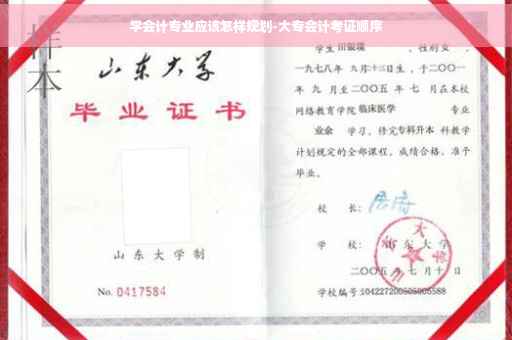 学会计专业应该怎样规划-大专会计考证顺序
样本
山东大学
毕业证书
山东大学制
No. 0417584
学生田银瑞 ，性别女 ，
一九七八年 九月十三日生，于二〇〇一
年 九 月至二〇〇五 年 七 月在本校
网络教育学院临床医学 专业
业余 学习，修完专科升本 科教学
计划规定的全部课程，成绩合格，准予
毕业。
校 长：
学 校： 山东大学
二〇〇五 年 七 月 十 日
学校编号：104227200505005588